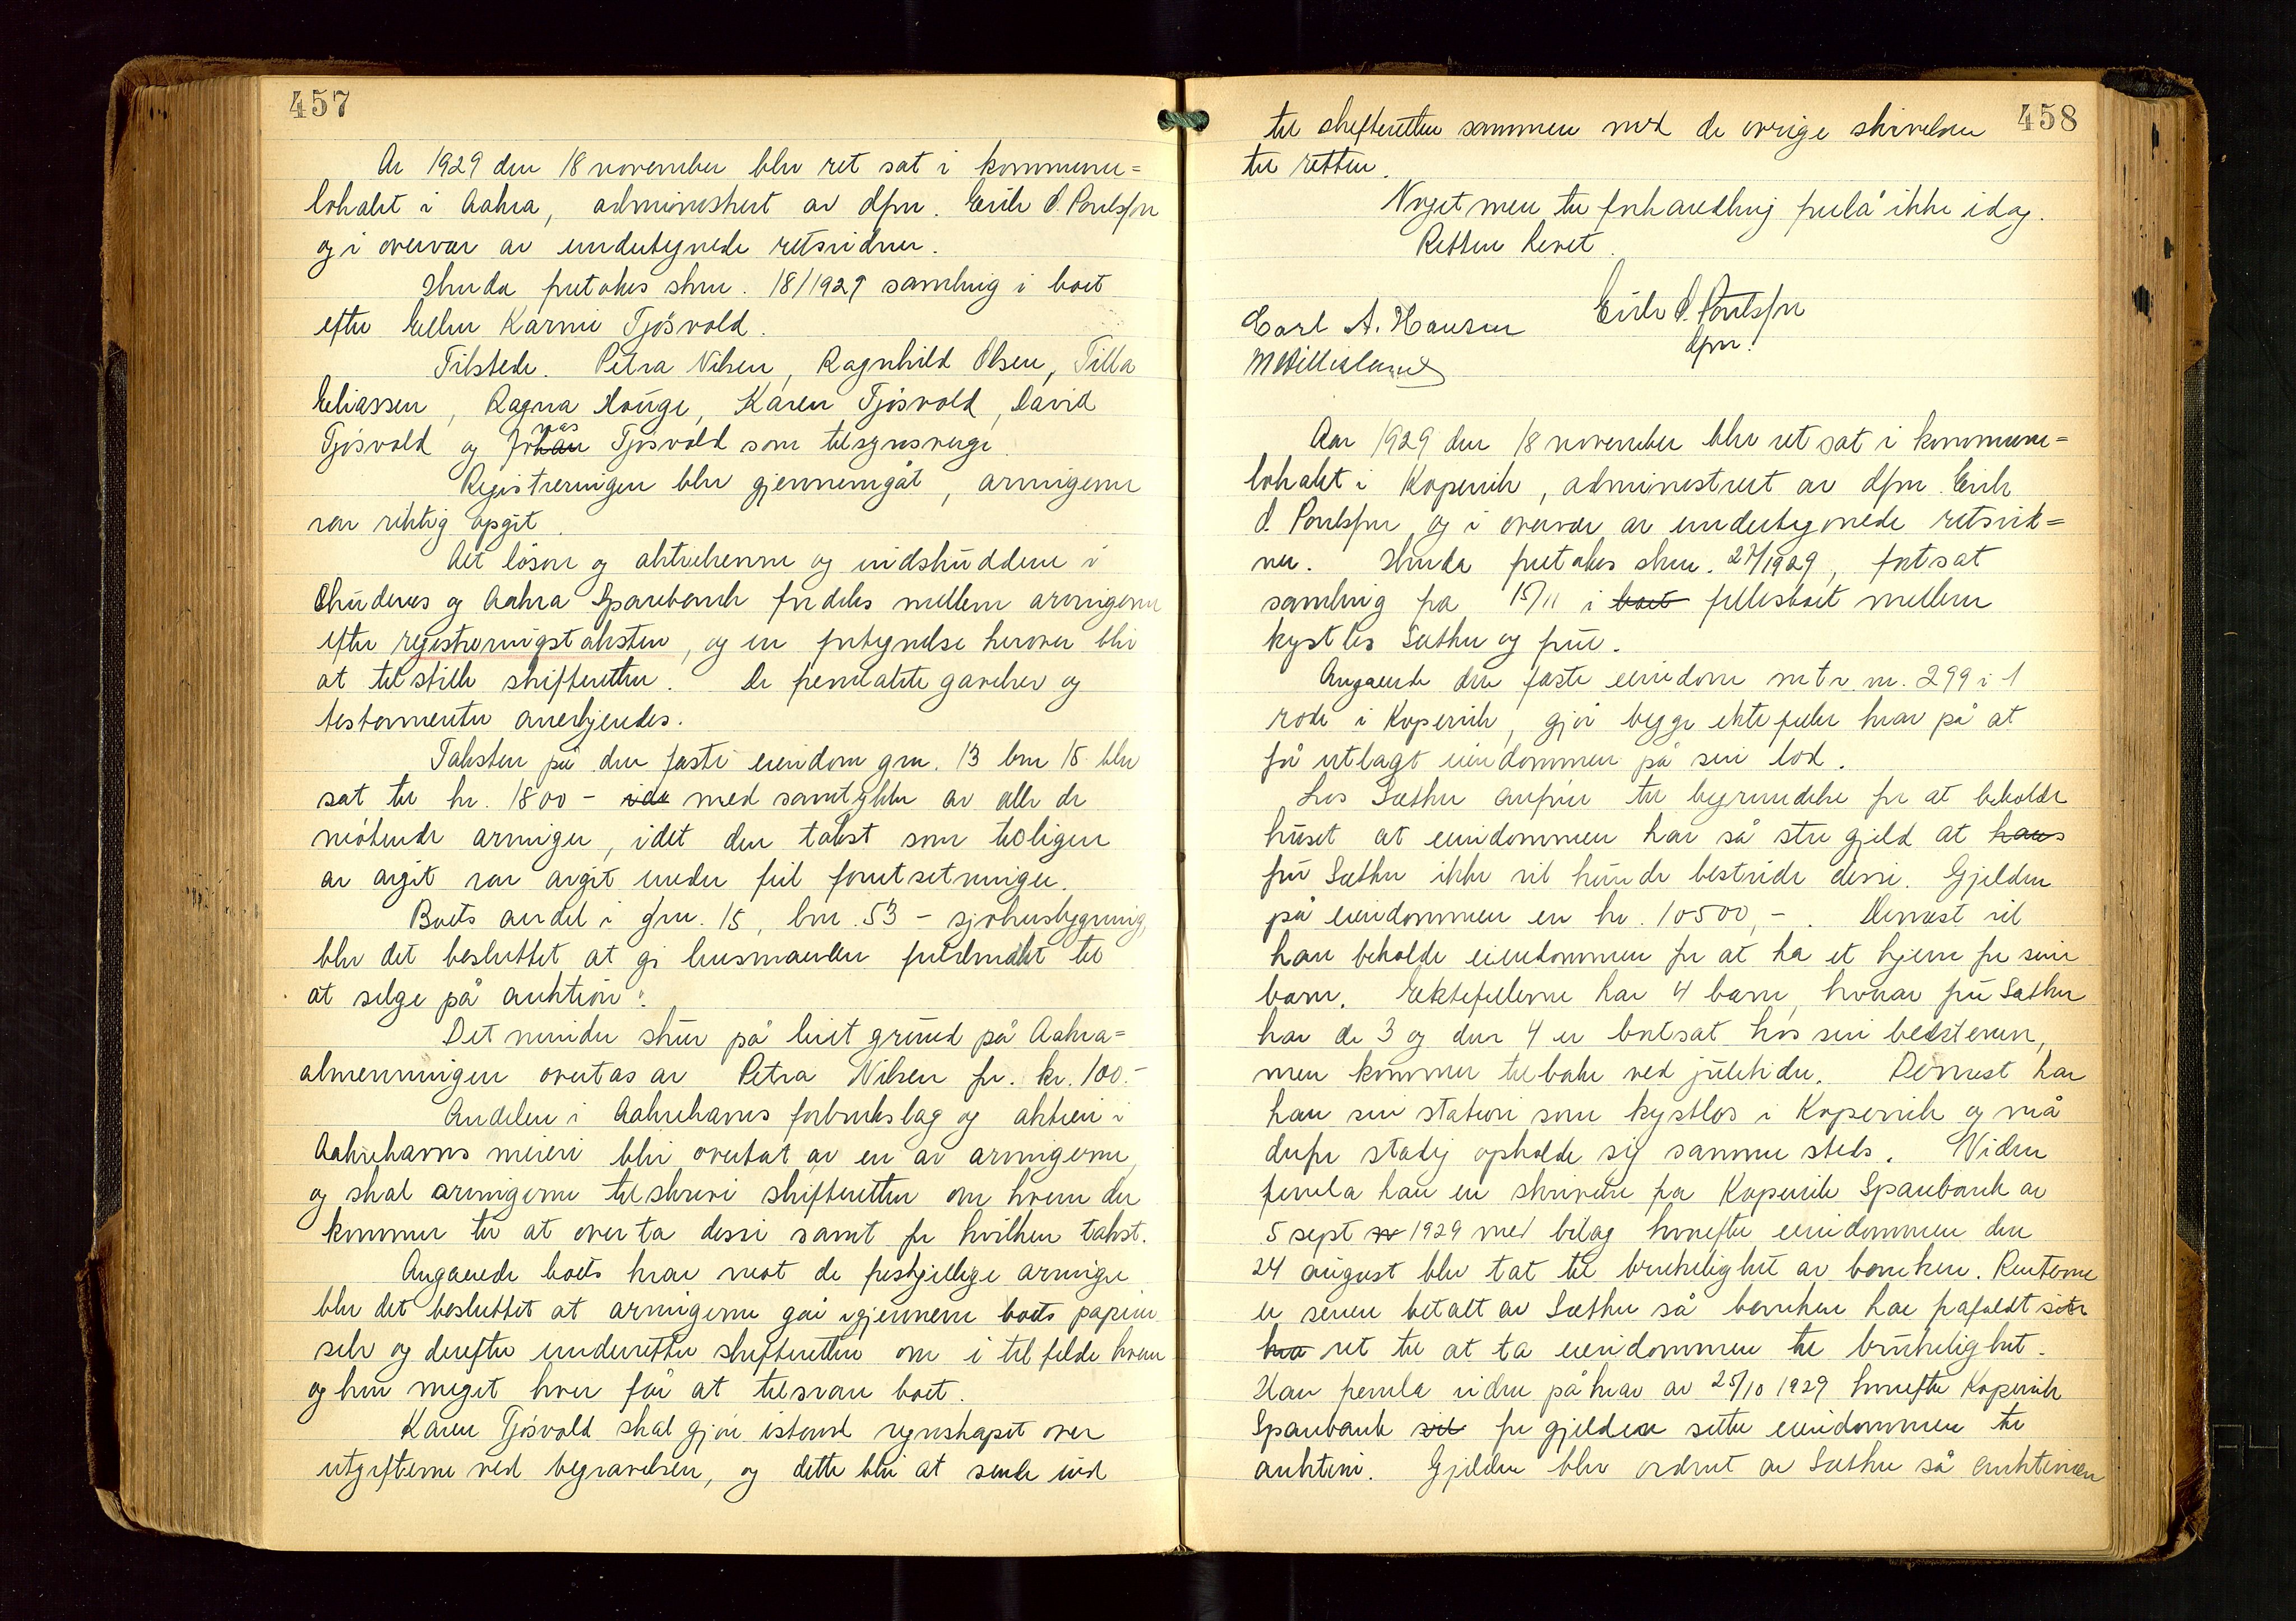 457
År 1929 den 18 november blev ret sat i kommune=
lokalet i Aakra, administrert av dfm. Eirik S. Poulsson
og i overvær av undertegnede retsvidner.
Herunder foretokes skm. 18/1929 samling i boet
efter Ellen Karine Tjøsvold.
Tilstede. Petra Nilsen, Ragnhild Olsen, Tilla
Eliassen, Ragna Hauge, Karen Tjøsvold, David
Tjøsvold og Johan nas Tjøsvold som tilsynsverge.
Registreringen blev gjennemgåt, arvingerne
var riktig opgit.
Alt løsøre og aktiekerne og indskuddene i
Skudenes og Aakra Sparebank fordeles mellem arvingerne
efter registreringstaksten, og en fortegnelse herover blir
at tilstille skifteretten. De fremlagte gavebrev og
testamenter anerkjendes.
Taksten på den faste eiendom gnr. 13 bnr 15 blev
sat til kr. 1800 - ide med samtykke av alle de
møtende arvinger, idet den takst som tidligere
av avgit var avgit under feil forutsetninger.
Boets andel i gnr. 15, bnr. 53 - sjøhusbygning,
blev det besluttet at gi lensmanden fuldmakt til
at selge på auktion.
Det mindre skur på leiet grund på Aakra=
almenningen overtas av Petra Nilsen for kr. 100.-
Andelen i Aakrehavns forbrukslag og aktien i
Aakrehavns meieri blir overtat av en av arvingerne,
og skal arvingerne tilskrive skifteretten om hvem der
kommer til at overta disse samt for hvilken takst.
Angaaende boets krav mot de forskjellige arvinger
blev det besluttet at arvingerne går igjennem boets papirer
selv og derefter underretter skifteretten om i tilfelde hvem
og hvor meget hver får at tilsvare boet.
Karen Tjøsvold skal gjøre istand regnskapet over
utgifterne ved begravelsen, og dette blir at sende ind
458
til skifteretten sammen med de øvrige skrivelser
til retten.
Noget mer til forhandling forelå ikke idag.
Retten hevet.
Eirik S. Poulsson
dfm.
Carl A. Hansen
Aar 1929 den 18 november blev ret sat i kommune=
lokalet i Kopervik, administrert av dfm. Eirik
S. Poulsson og i overvær av undertegnede retsvid=
ner. Herunder foretokes skm. 27/1929, fortsat
samling fra 15/11 i boet fellesboet mellem
kystlos Sæther og frue.
Angaaende den faste eiendom mtr. nr. 299 i 1
rode i Kopervik, gjør begge ektefeller krav på at
få utlagt eiendommen på sin lod.
Los Sæther anfører til begrundelse for at beholde
huset at eiendommen har så stor gjeld at hans
fru Sæther ikke vil kunde bestride disse. Gjelden
på eiendommen er kr. 10500,-. Dernæst vil
han beholde eiendommen for at ha et hjem for sine
barn. Ektefellerne har 4 barn, hvorav fru Sæther
har de 3 og den 4 er bortsat hos sin bedstemor,
men kommer tilbake ved juletider. Dernæst har
han sin station som kystlos i Kopervik og må
derfor stadig opholde sig samme steds. Videre
fremla han en skrivelse fra Kopervik Sparebank av
5 sept 1929 med bilag hvorefter eiendommen den
24 august blev tat til brukelighet av banken. Renterne
er senere betalt av Sæther så banken har frafaldt sin
ha ret til at ta eiendommen til brukelighet.
Han fremla videre påkrav av 25/10 1929 hvorefter Kopervik
Sparebank vil for gjelden sette eiendommen til
auktion. Gjelden blev ordnet av Sæther så auktionen